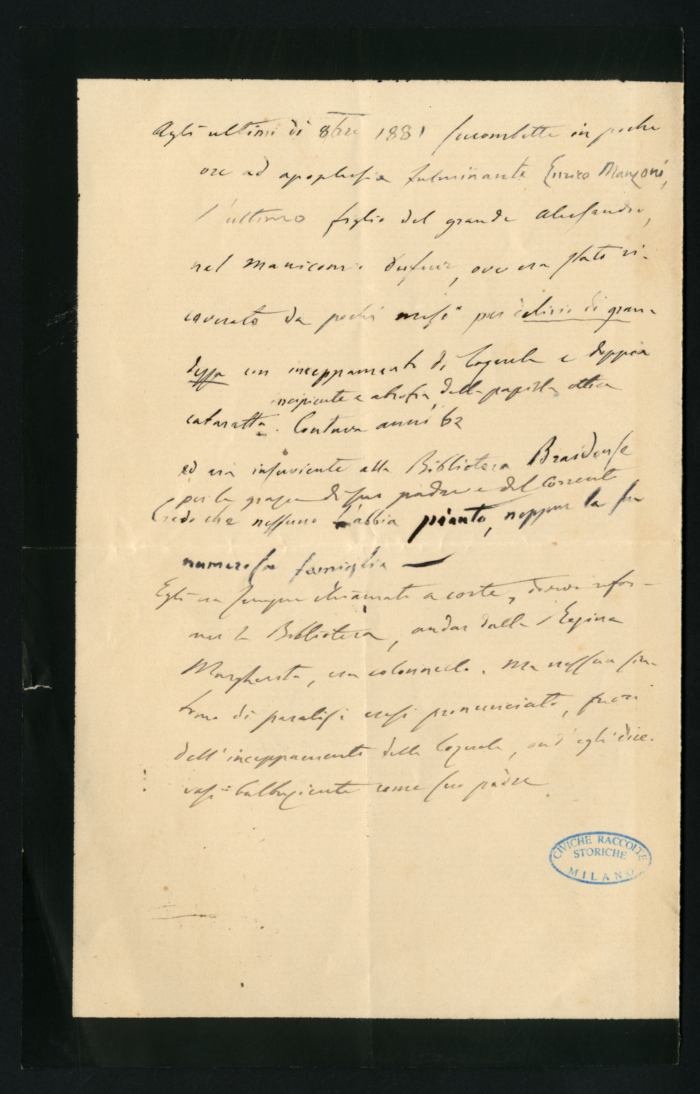 Agli ultimi di 8bre 1881 soccombette in poche
ore ad apoplessia fulminante Enrico Manzoni,
l'ultimo figlio del grande Alessandro,
nel manicomio ove era stato ri-
coverato da pochi mesi per delirio di gran-
dezza con inceppamento di loquela e doppia
incipiente e atrofia della papilla ottica
cataratta. Contava anni 62
ed era inserviente alla Biblioteca Braidense
per la grazia di suo padre e del Correnti
Credo che nessuno l'abbia pianto, neppur la sua
numerosa famiglia —
Egli era sempre chiamato a corte, dover rifor-
mar la Biblioteca, andar dalla Regina
Margherita, era colonnello. Ma nessun sin-
tomo di paralisi erasi pronunciato, fuori
dell'inceppamento della loquela, ond'egli dice-
vasi balbuziente come suo padre
CIVICHE RACCOLTE
STORICHE
MILANO